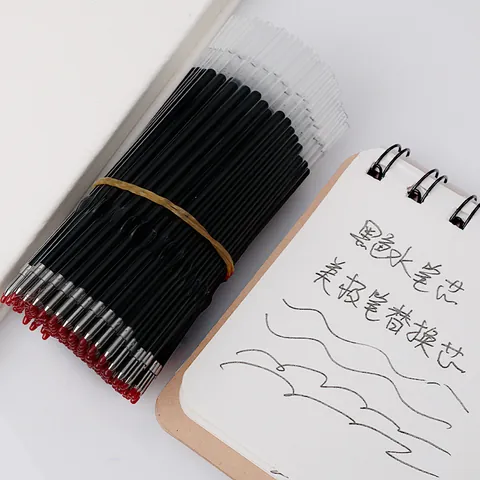 黑色水笔芯
美极笔替换芯